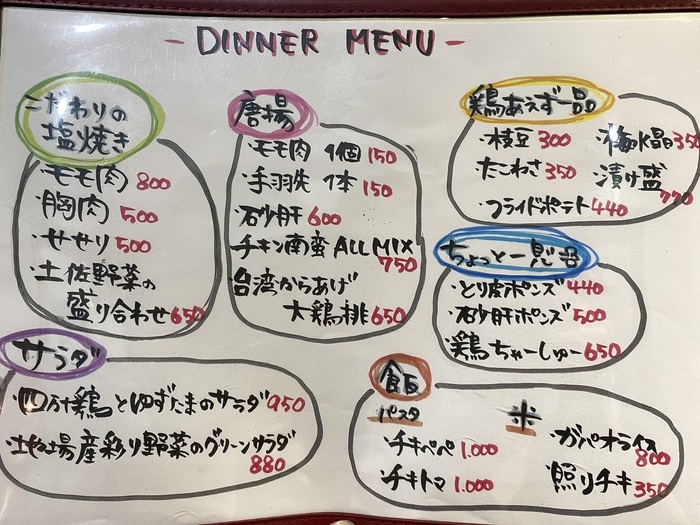 - DINNER MENU -
こだわりの
塩焼き
・モモ肉 800
・胸肉 500
・せせり 500
・土佐野菜の
盛り合わせ 650
唐揚
・モモ肉 1個 150
・手羽先 1本 150
・砂肝 600
チキン南蛮 ALL MIX
750
台湾からあげ
大鶏排 650
鶏あえず一品
・枝豆 300
・梅水晶 350
・たこわさ 350
・漬け盛
770
・フライドポテト 440
ちょっと一息
・とり皮ポンズ 440
・砂肝ポンズ 500
・鶏ちゃーしゅー 650
サラダ
・四万十鶏とゆずたまのサラダ 950
・地場産彩り野菜のグリーンサラダ
880
飯
パスタ
・チキペペ 1.000
・チキトマ 1.000
米
・ガパオライス
800
・照りチキ 350